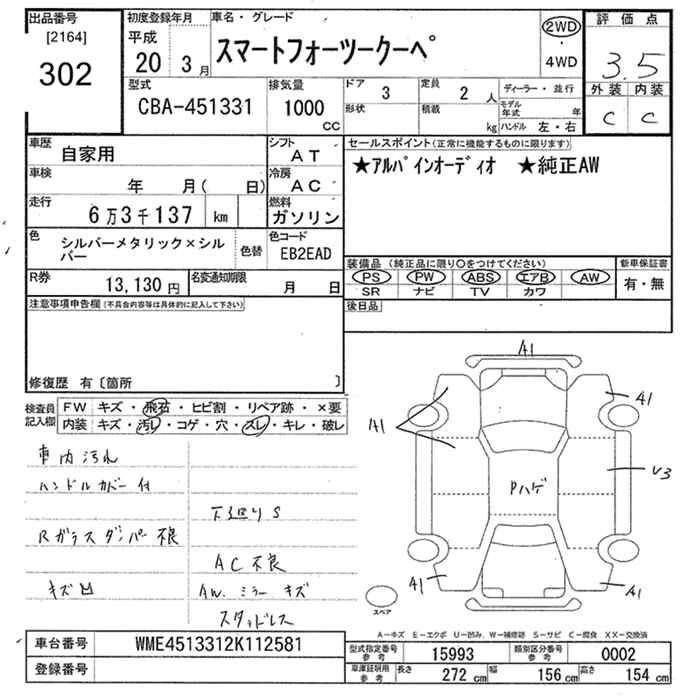 出品番号
[2164]
302
初度登録年月
平成
20 3月
車名・グレード
スマートフォーツークーペ
2WD
・
4WD
評価点
3.5
外装 内装
C C
型式
CBA-451331
排気量
1000
CC
ドア 3
形状
定員 2 人
積載 kg
ディーラー・並行
モデル年式 年
ハンドル 左・右
車歴 自家用
シフト AT
車検 年 月( 日)
冷房 AC
走行 6万3千137 km
燃料 ガソリン
色 シルバーメタリック×シルバー
色替
色コード
EB2EAD
R券 13,130円
名変通知期限 月 日
セールスポイント(正常に機能するものに限ります)
★アルパインオーディオ ★純正AW
装備品(純正品に限り○をつけてください)
PS PW ABS エアB AW
SR ナビ TV カワ
新車保証書
有・無
後日品
注意事項申告欄(不具合内容等は具体的に記入して下さい)
修復歴 有〔箇所 〕
検査員記入欄
FW キズ・飛石・ヒビ割・リペア跡・×要
内装 キズ・汚レ・コゲ・穴・スレ・キレ・破レ
車内汚れ
ハンドルカバー付
下廻りS
Rガラスダンパー不良
AC不良
キズ凹
AW.ミラーキズ
スタッドレス
A1
A1
A1
Pハゲ
U3
A1
A1
スペア
A-キズ E-エクボ U-凹み W-補修跡 S-サビ C-腐食 XX-交換済
車台番号 WME4513312K112581
登録番号
型式指定番号参考 15993
類別区分番号参考 0002
車庫証明用参考 長さ 272cm 幅 156cm 高さ 154cm